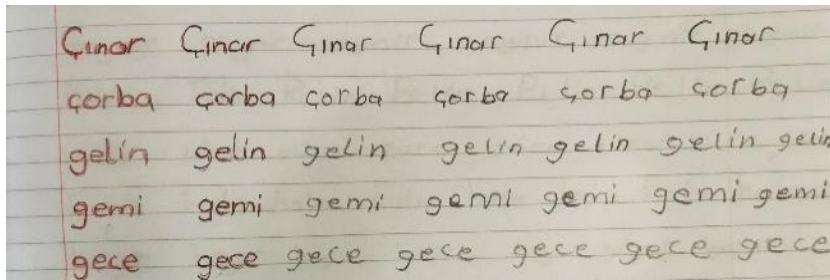 Çınar Çınar Çınar Çınar Çınar Çınar
çorba çorba çorba çorba çorba çorba
gelin gelin gelin gelin gelin gelin gelin
gemi gemi gemi gemi gemi gemi gemi
gece gece gece gece gece gece gece